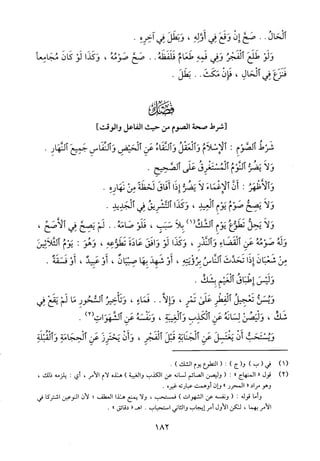 الْحَالَ . . صَحَّ إِنْ وَقَعَ فِي أَوَّلِهِ ، وَبَطَلَ فِي آخِرِهِ .
وَلَوْ طَلَعَ الْفَجْرُ وَفِي فَمِهِ طَعَامٌ فَلَفَظَهُ . . صَحَّ صَوْمُهُ ، وَكَذَا لَوْ كَانَ مُجَامِعاً
فَنَزَعَ فِي الْحَالِ ، فَإِنْ مَكَثَ . . بَطَلَ .
فَصْلٌ
[ شرط صحة الصوم من حيث الفاعل والوقت ]
شَرْطُ الصَّوْمِ : الْإِسْلَامُ وَالْعَقْلُ وَالنَّقَاءُ عَنِ الْحَيْضِ وَالنِّفَاسِ جَمِيعَ النَّهَارِ .
وَلَا يَضُرُّ النَّوْمُ الْمُسْتَغْرِقُ عَلَى الصَّحِيحِ .
وَالْأَظْهَرُ : أَنَّ الْإِغْمَاءَ لَا يَضُرُّ إِذَا أَفَاقَ لَحْظَةً مِنْ نَهَارِهِ .
وَلَا يَصِحُّ صَوْمُ يَوْمِ الْعِيدِ ، وَكَذَا التَّشْرِيقُ فِي الْجَدِيدِ .
وَلَا يَحِلُّ تَطَوُّعُ يَوْمِ الشَّكِّ (١) بِلَا سَبَبٍ ، فَلَوْ صَامَهُ . . لَمْ يَصِحَّ فِي الْأَصَحِّ ،
وَلَهُ صَوْمُهُ عَنِ الْقَضَاءِ وَالنَّذْرِ ، وَكَذَا لَوْ وَافَقَ عَادَةَ تَطَوُّعِهِ ، وَهُوَ : يَوْمُ الثَّلَاثِينَ
مِنْ شَعْبَانَ إِذَا تَحَدَّثَ النَّاسُ بِرُؤْيَتِهِ ، أَوْ شَهِدَ بِهَا صِبْيَانٌ ، أَوْ عَبِيدٌ ، أَوْ فَسَقَةٌ .
وَلَيْسَ إِطْبَاقُ الْغَيْمِ بِشَكٍّ .
وَيُسَنُّ تَعْجِيلُ الْفِطْرِ عَلَى تَمْرٍ ، وَإِلَّا . . فَمَاءٍ ، وَتَأْخِيرُ السُّحُورِ مَا لَمْ يَقَعْ فِي
شَكٍّ ، وَلْيَصُنْ لِسَانَهُ عَنِ الْكَذِبِ وَالْغِيبَةِ ، وَنَفْسَهُ عَنِ الشَّهَوَاتِ (٢) .
وَيُسْتَحَبُّ أَنْ يَغْتَسِلَ عَنِ الْجَنَابَةِ قَبْلَ الْفَجْرِ ، وَأَنْ يَحْتَرِزَ عَنِ الْحِجَامَةِ وَالْقُبْلَةِ
(١) في ( ب ) و( ج ) : ( التطوع يوم الشك ) .
(٢) قول « المنهاج » : ( وليصن الصائم لسانه عن الكذب والغيبة ) هذه لام الأمر ، أي : يلزمه ذلك ،
وهو مراد « المحرر » وإن أوهمت عبارته غيره .
وأما قوله : ( ونفسه عن الشهوات ) فمستحب ، ولا يمنع هذا العطف ؛ لأن النوعين اشتركا في
الأمر بهما ، لكن الأول أمر إيجاب والثاني استحباب . اهـ « دقائق » .
١٨٢